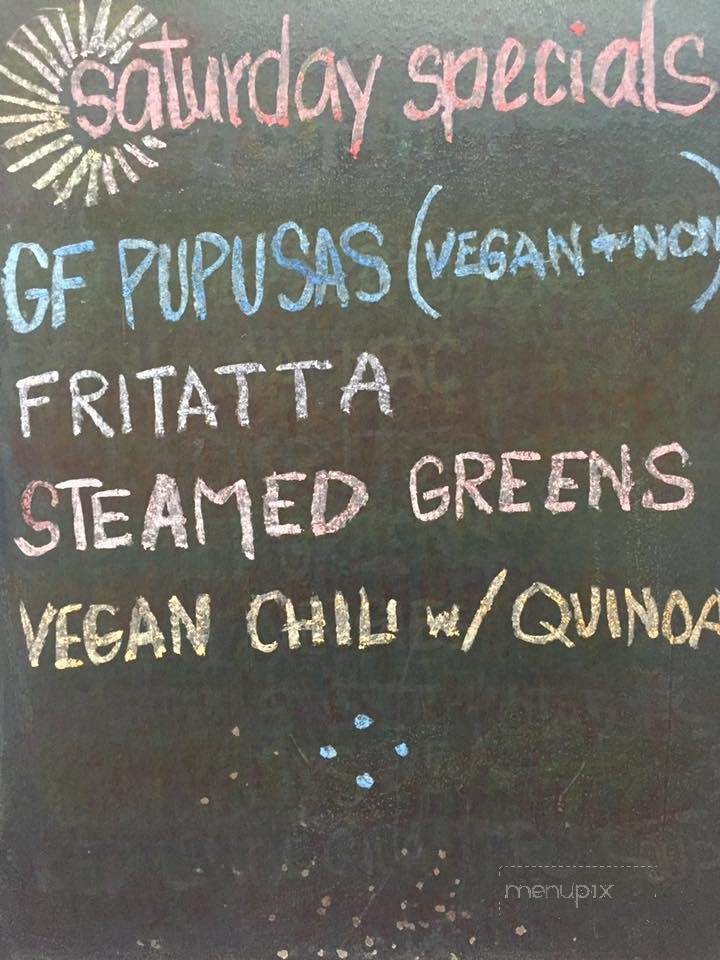 saturday specials
GF PUPUSAS (VEGAN + NON)
FRITATTA
STEAMED GREENS
VEGAN CHILI w/ QUINOA
menupix